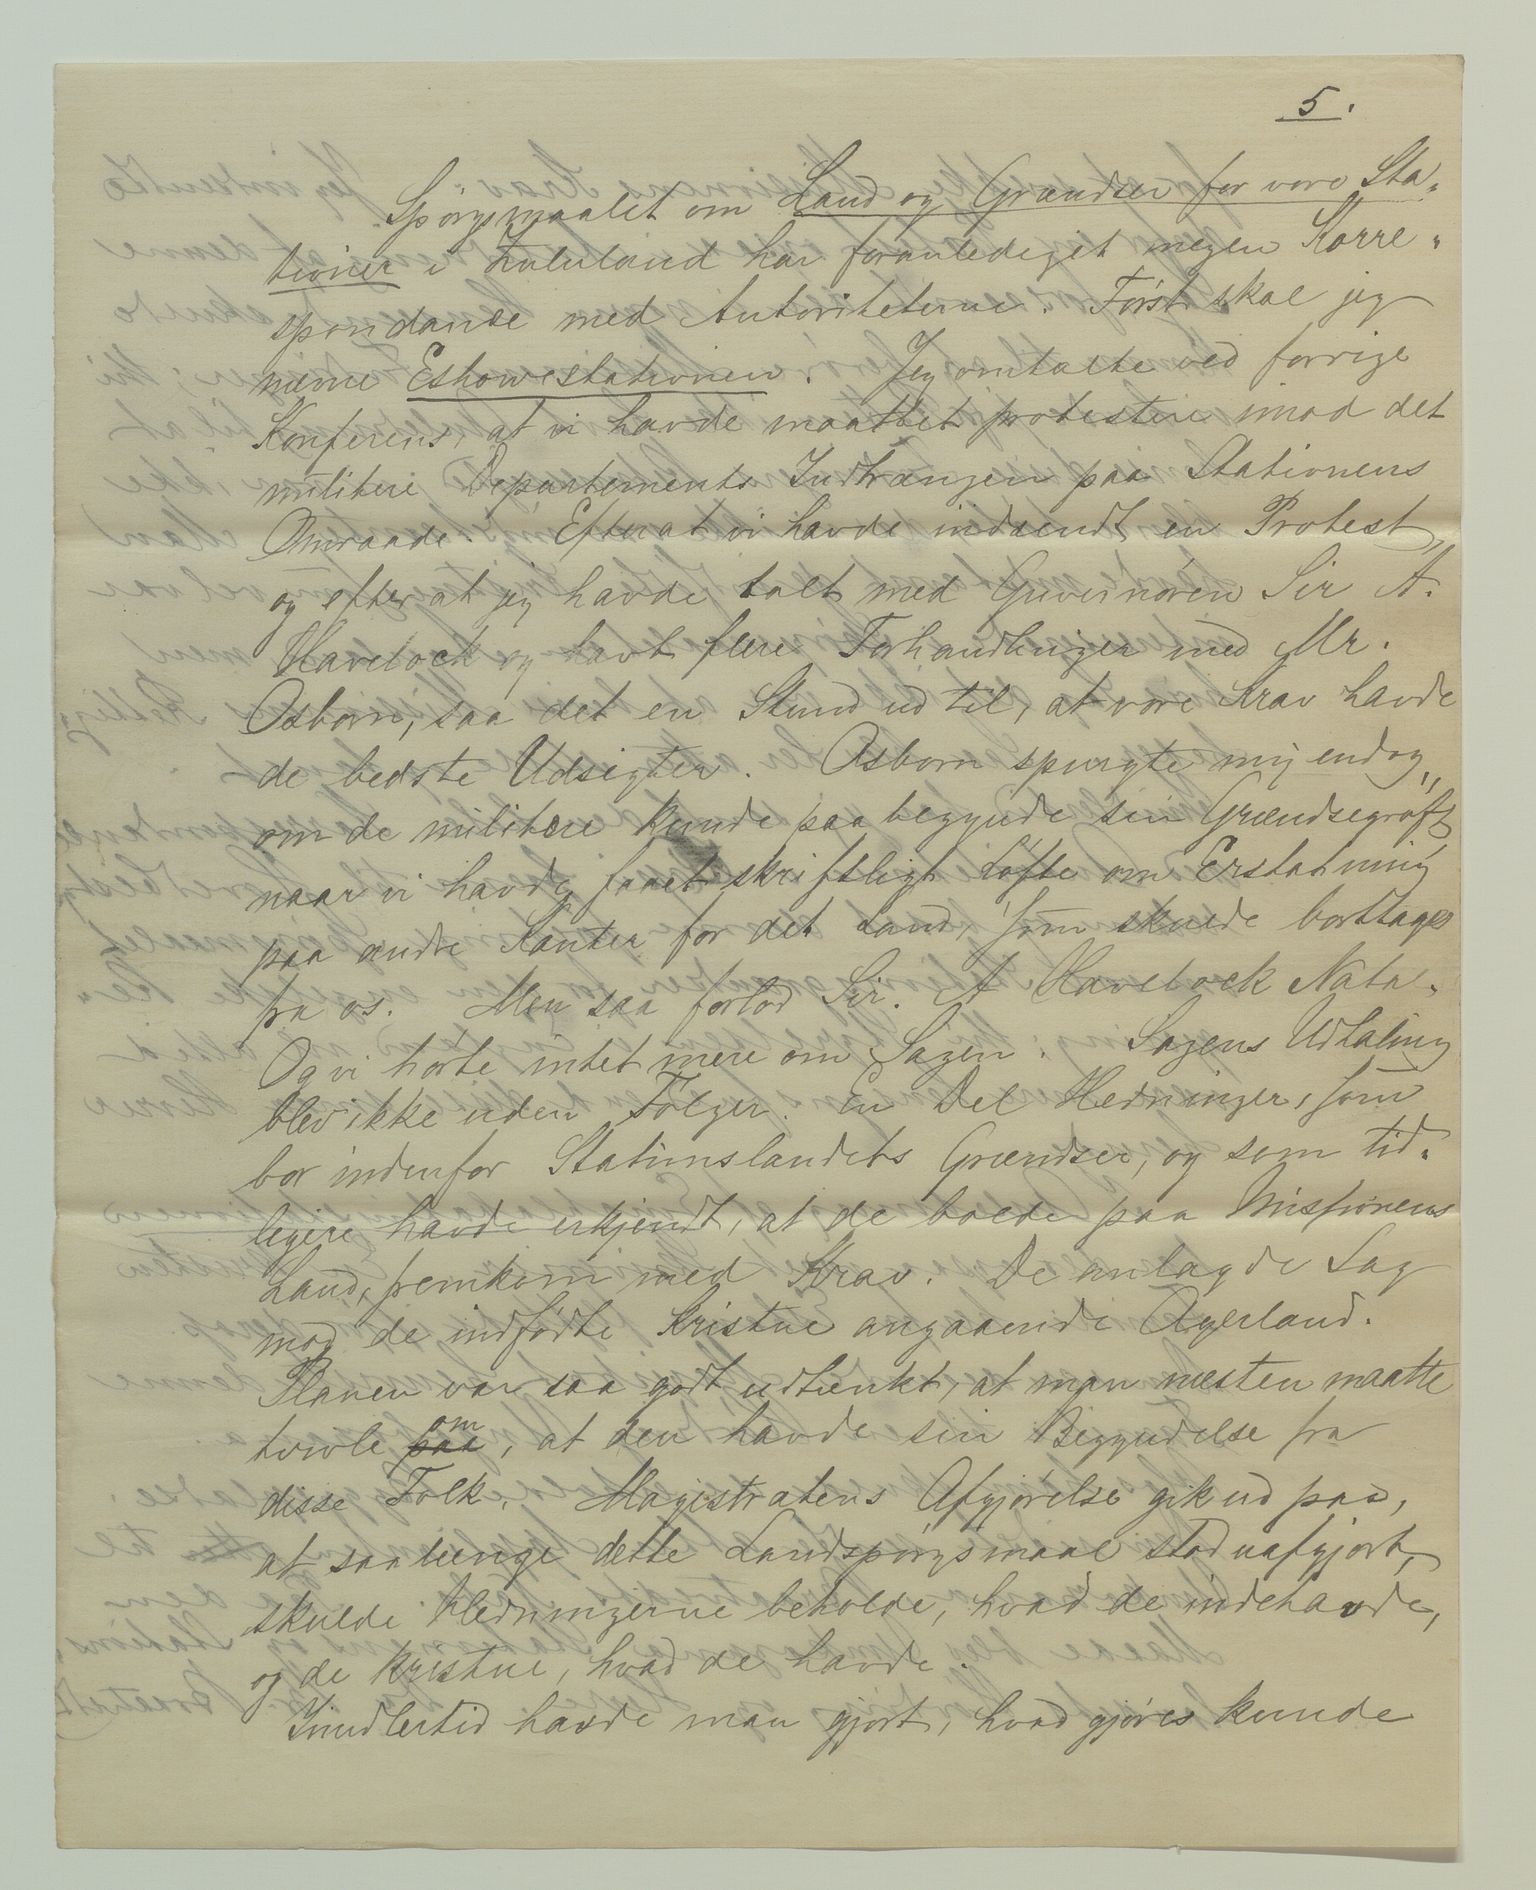 5.
Spörgsmaalet om Land og Grændser for vore Sta-
tioner i Zululand har foranlediget megen Korre-
spondance med Autoriteterne. Först skal jeg
nævne Eshowestationen. Jeg omtalte ved forrige
Konferens, at vi havde maattet protestere imod det
militære Departements Indtrængen paa Stationens
Omraade. Efterat vi havde indsendt en Protest,
og efter at jeg havde talt med Guvernören Sir A.
Havelock og havt flere Forhandlinger med Mr.
Osborn, saa det en Stund ud til, at vore Krav havde
de bedste Udsigter. Osborn spurgte mig endog,
om de militære kunde paabegynde sin Grændsegröft,
naar vi havde faaet skriftligt Löfte om Erstatning
paa andre Kanter for det Land, som skulde borttages
fra os. Men saa forlod Sir. A Havelock Natal.
Og vi hörte intet mere om Sagen. Sagens Udhaling
blev ikke uden Fölger. En Del Hedninger, som
bor indenfor Stationslandets Grændser, og som tid-
ligere havde erkjendt, at de boede paa Missionens
Land, fremkom med Krav. De anlagde Sag
mod de indfödte Kristne angaaende Agerland.
Planen var saa godt udtænkt, at man næsten maatte
tvivle paa om, at den havde sin Begyndelse fra
disse Folk. Magistratens Afgjörelse gik ud paa,
at saalænge dette Landspörgsmaal stod uafgjort,
skulde Hedningerne beholde, hvad de indehavde,
og de kristne, hvad de havde.
Imidlertid havde man gjort, hvad gjöres kunde